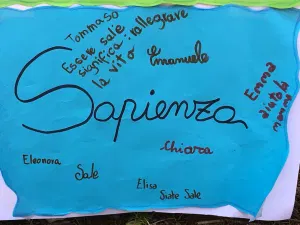 Tommaso
Essere sale
significa: rallegrare
la vita
Emanuele
Sapienza
Emma
aiuta la
mamma
Chiara
Eleonora
Sale
Elisa
Siate Sale